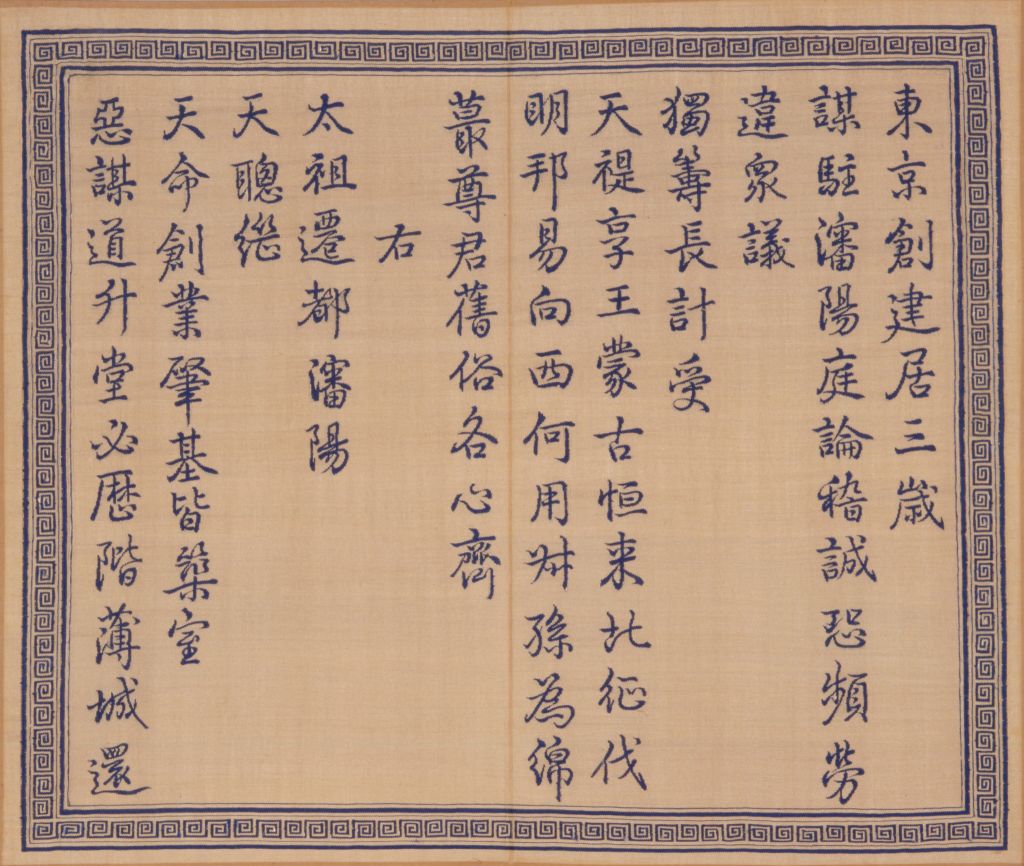 東京創建居三歲
謀駐瀋陽庭論稽誠恐頻勞
違眾議
獨籌長計受
天禔享王蒙古恒来北征伐
明邦易向西何用叔孫為綿
蕞尊君舊俗各心齊
右
太祖遷都瀋陽
天聰繼
天命創業肇基皆築室
惡謀道升堂必歷階薄城還